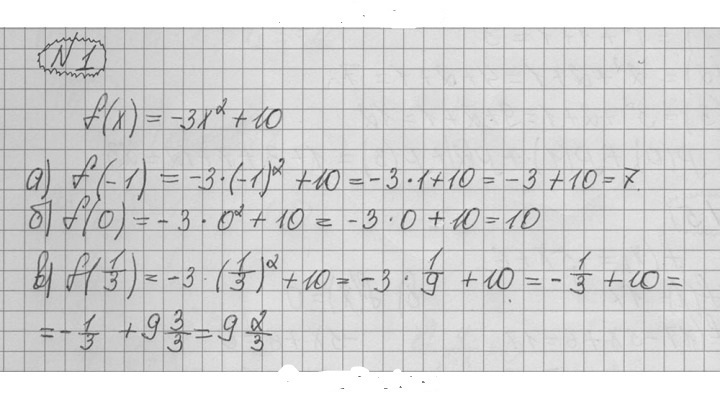 N1
f(x) = -3x² + 10
а) f(-1) = -3·(-1)² + 10 = -3·1+10 = -3 + 10 = 7.
б) f(0) = -3 · 0² + 10 = -3·0 + 10 = 10
в) f(1/3) = -3 · (1/3)² + 10 = -3 · 1/9 + 10 = -1/3 + 10 =
= -1/3 + 9 3/3 = 9 2/3